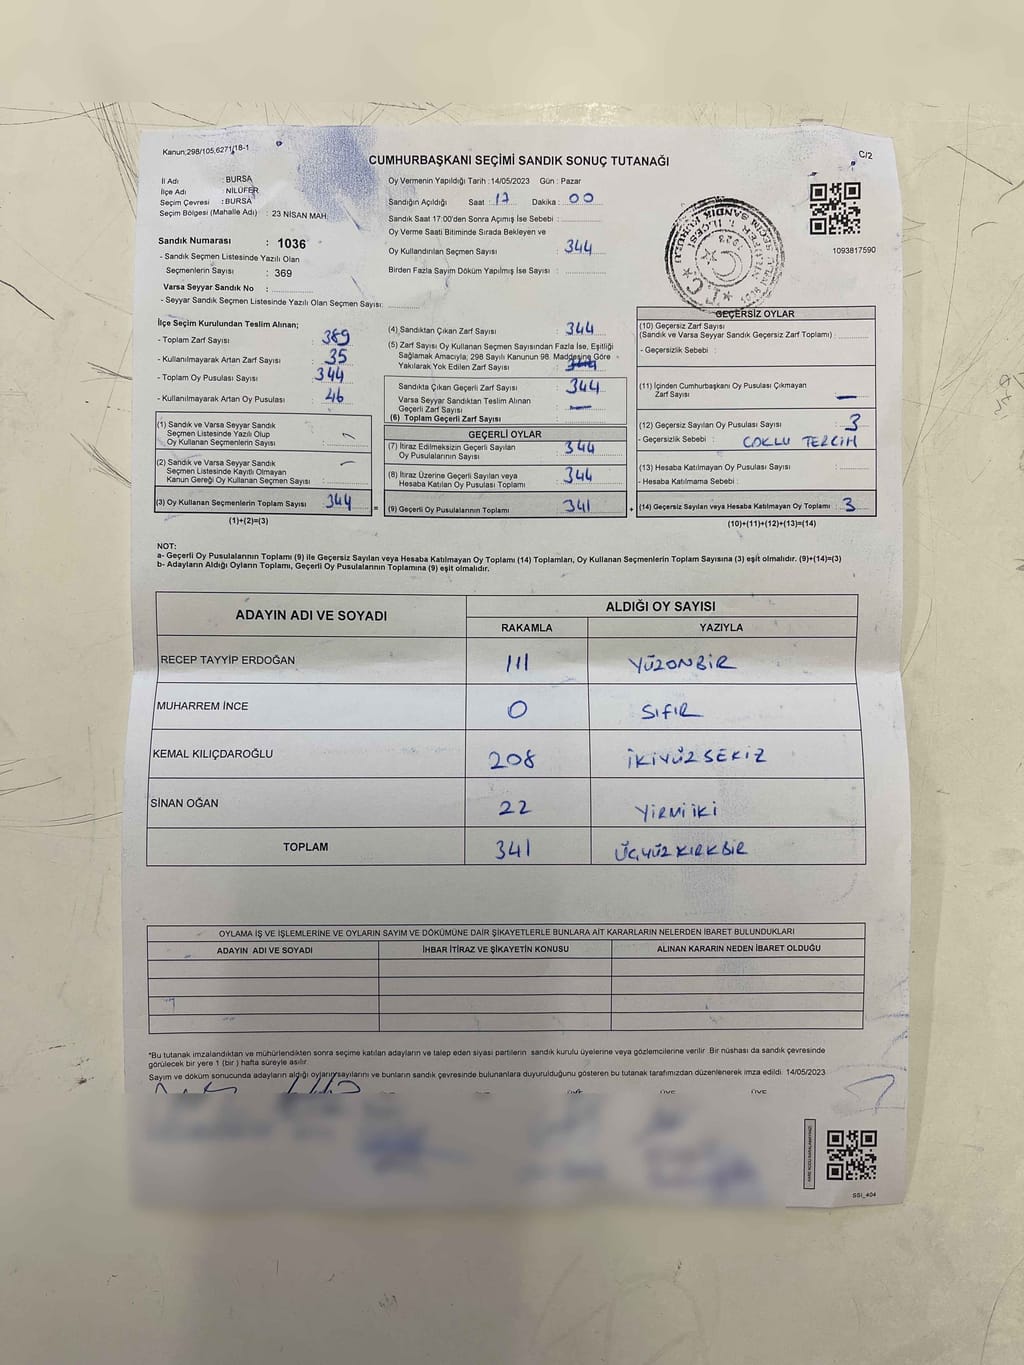 Kanun:298/105,6271/18-1
C/2
CUMHURBAŞKANI SEÇİMİ SANDIK SONUÇ TUTANAĞI
İl Adı : BURSA
İlçe Adı : NİLÜFER
Seçim Çevresi : BURSA
Seçim Bölgesi (Mahalle Adı) : 23 NİSAN MAH.
Sandık Numarası : 1036
- Sandık Seçmen Listesinde Yazılı Olan
Seçmenlerin Sayısı : 369
Varsa Seyyar Sandık No :
- Seyyar Sandık Seçmen Listesinde Yazılı Olan Seçmen Sayısı:
Oy Vermenin Yapıldığı Tarih :14/05/2023 Gün : Pazar
Sandığın Açıldığı Saat : 17 Dakika : 00
Sandık Saat 17:00'den Sonra Açımış İse Sebebi :
Oy Verme Saati Bitiminde Sırada Bekleyen ve
Oy Kullandırılan Seçmen Sayısı : 344
Birden Fazla Sayım Döküm Yapılmış İse Sayısı :
1093817590
İlçe Seçim Kurulundan Teslim Alınan;
- Toplam Zarf Sayısı : 389
- Kullanılmayarak Artan Zarf Sayısı : 35
- Toplam Oy Pusulası Sayısı : 344
- Kullanılmayarak Artan Oy Pusulası : 46
(1) Sandık ve Varsa Seyyar Sandık
Seçmen Listesinde Yazılı Olup
Oy Kullanan Seçmenlerin Sayısı :
(2) Sandık ve Varsa Seyyar Sandık
Seçmen Listesinde Kayıtlı Olmayan
Kanun Gereği Oy Kullanan Seçmen Sayısı :
(3) Oy Kullanan Seçmenlerin Toplam Sayısı : 344
(1)+(2)=(3)
(4) Sandıktan Çıkan Zarf Sayısı : 344
(5) Zarf Sayısı Oy Kullanan Seçmen Sayısından Fazla İse, Eşitliği
Sağlamak Amacıyla; 298 Sayılı Kanunun 98. Maddesine Göre
Yakılarak Yok Edilen Zarf Sayısı :
Sandıkta Çıkan Geçerli Zarf Sayısı : 344
Varsa Seyyar Sandıktan Teslim Alınan
Geçerli Zarf Sayısı : —
(6) Toplam Geçerli Zarf Sayısı :
GEÇERLİ OYLAR
(7) İtiraz Edilmeksizin Geçerli Sayılan
Oy Pusulalarının Sayısı : 344
(8) İtiraz Üzerine Geçerli Sayılan veya
Hesaba Katılan Oy Pusulası Toplamı : 344
(9) Geçerli Oy Pusulalarının Toplamı : 341
GEÇERSİZ OYLAR
(10) Geçersiz Zarf Sayısı
(Sandık ve Varsa Seyyar Sandık Geçersiz Zarf Toplamı) :
- Geçersizlik Sebebi :
(11) İçinden Cumhurbaşkanı Oy Pusulası Çıkmayan
Zarf Sayısı : —
(12) Geçersiz Sayılan Oy Pusulası Sayısı : 3
- Geçersizlik Sebebi : ÇOKLU TERCİH
(13) Hesaba Katılmayan Oy Pusulası Sayısı :
- Hesaba Katılmama Sebebi :
(14) Geçersiz Sayılan veya Hesaba Katılmayan Oy Toplamı : 3
(10)+(11)+(12)+(13)=(14)
NOT:
a- Geçerli Oy Pusulalarının Toplamı (9) ile Geçersiz Sayılan veya Hesaba Katılmayan Oy Toplamı (14) Toplamları, Oy Kullanan Seçmenlerin Toplam Sayısına (3) eşit olmalıdır. (9)+(14)=(3)
b- Adayların Aldığı Oyların Toplamı, Geçerli Oy Pusulalarının Toplamına (9) eşit olmalıdır.
ADAYIN ADI VE SOYADI ALDIĞI OY SAYISI
RAKAMLA YAZIYLA
RECEP TAYYİP ERDOĞAN 111 YÜZONBİR
MUHARREM İNCE 0 SIFIR
KEMAL KILIÇDAROĞLU 208 İKİYÜZSEKİZ
SİNAN OĞAN 22 YİRMİİKİ
TOPLAM 341 ÜÇYÜZKIRKBİR
OYLAMA İŞ VE İŞLEMLERİNE VE OYLARIN SAYIM VE DÖKÜMÜNE DAİR ŞİKAYETLERLE BUNLARA AİT KARARLARIN NELERDEN İBARET BULUNDUKLARI
ADAYIN ADI VE SOYADI İHBAR İTİRAZ VE ŞİKAYETİN KONUSU ALINAN KARARIN NEDEN İBARET OLDUĞU
*Bu tutanak imzalandıktan ve mühürlendikten sonra seçime katılan adayların ve talep eden siyasi partilerin sandık kurulu üyelerine veya gözlemcilerine verilir .Bir nüshası da sandık çevresinde
görülecek bir yere 1 (bir ) hafta süreyle asılır.
Sayım ve döküm sonucunda adayların aldığı oyların sayılarını ve bunların sandık çevresinde bulunanlara duyurulduğunu gösteren bu tutanak tarafımızdan düzenlenerek imza edildi. 14/05/2023
SSI_404